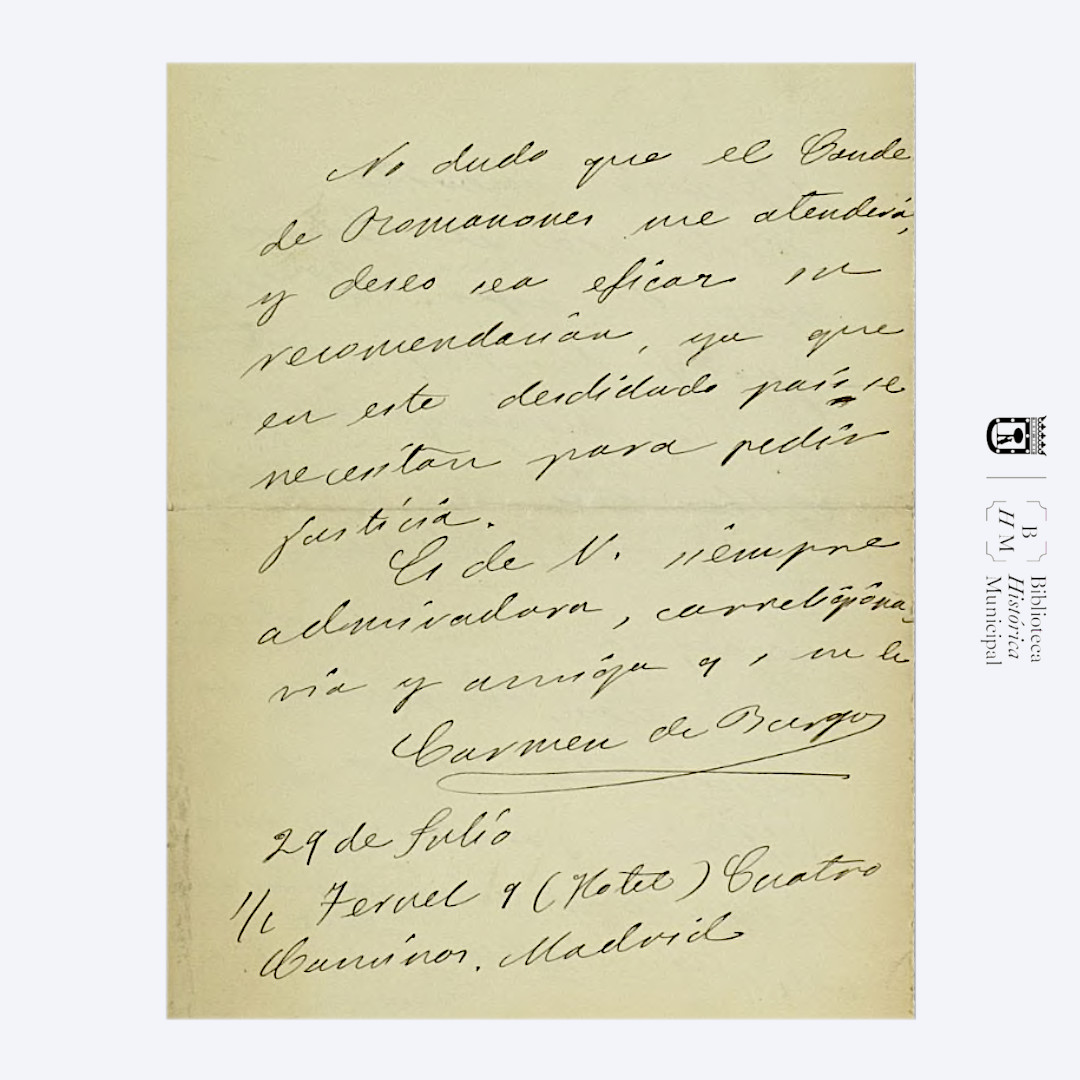 No dudo que el Conde
de Romanones me atenderá,
y deseo sea eficaz su
recomendación, ya que
en este desdichado país se
necesitan para pedir
justicia.
Es de V. siempre
admiradora, correligiona-
ria y amiga q s m b
Carmen de Burgos
29 de Julio
Teruel 9 (Hotel) Cuatro
Caminos. Madrid
B
HM
Biblioteca
Histórica
Municipal